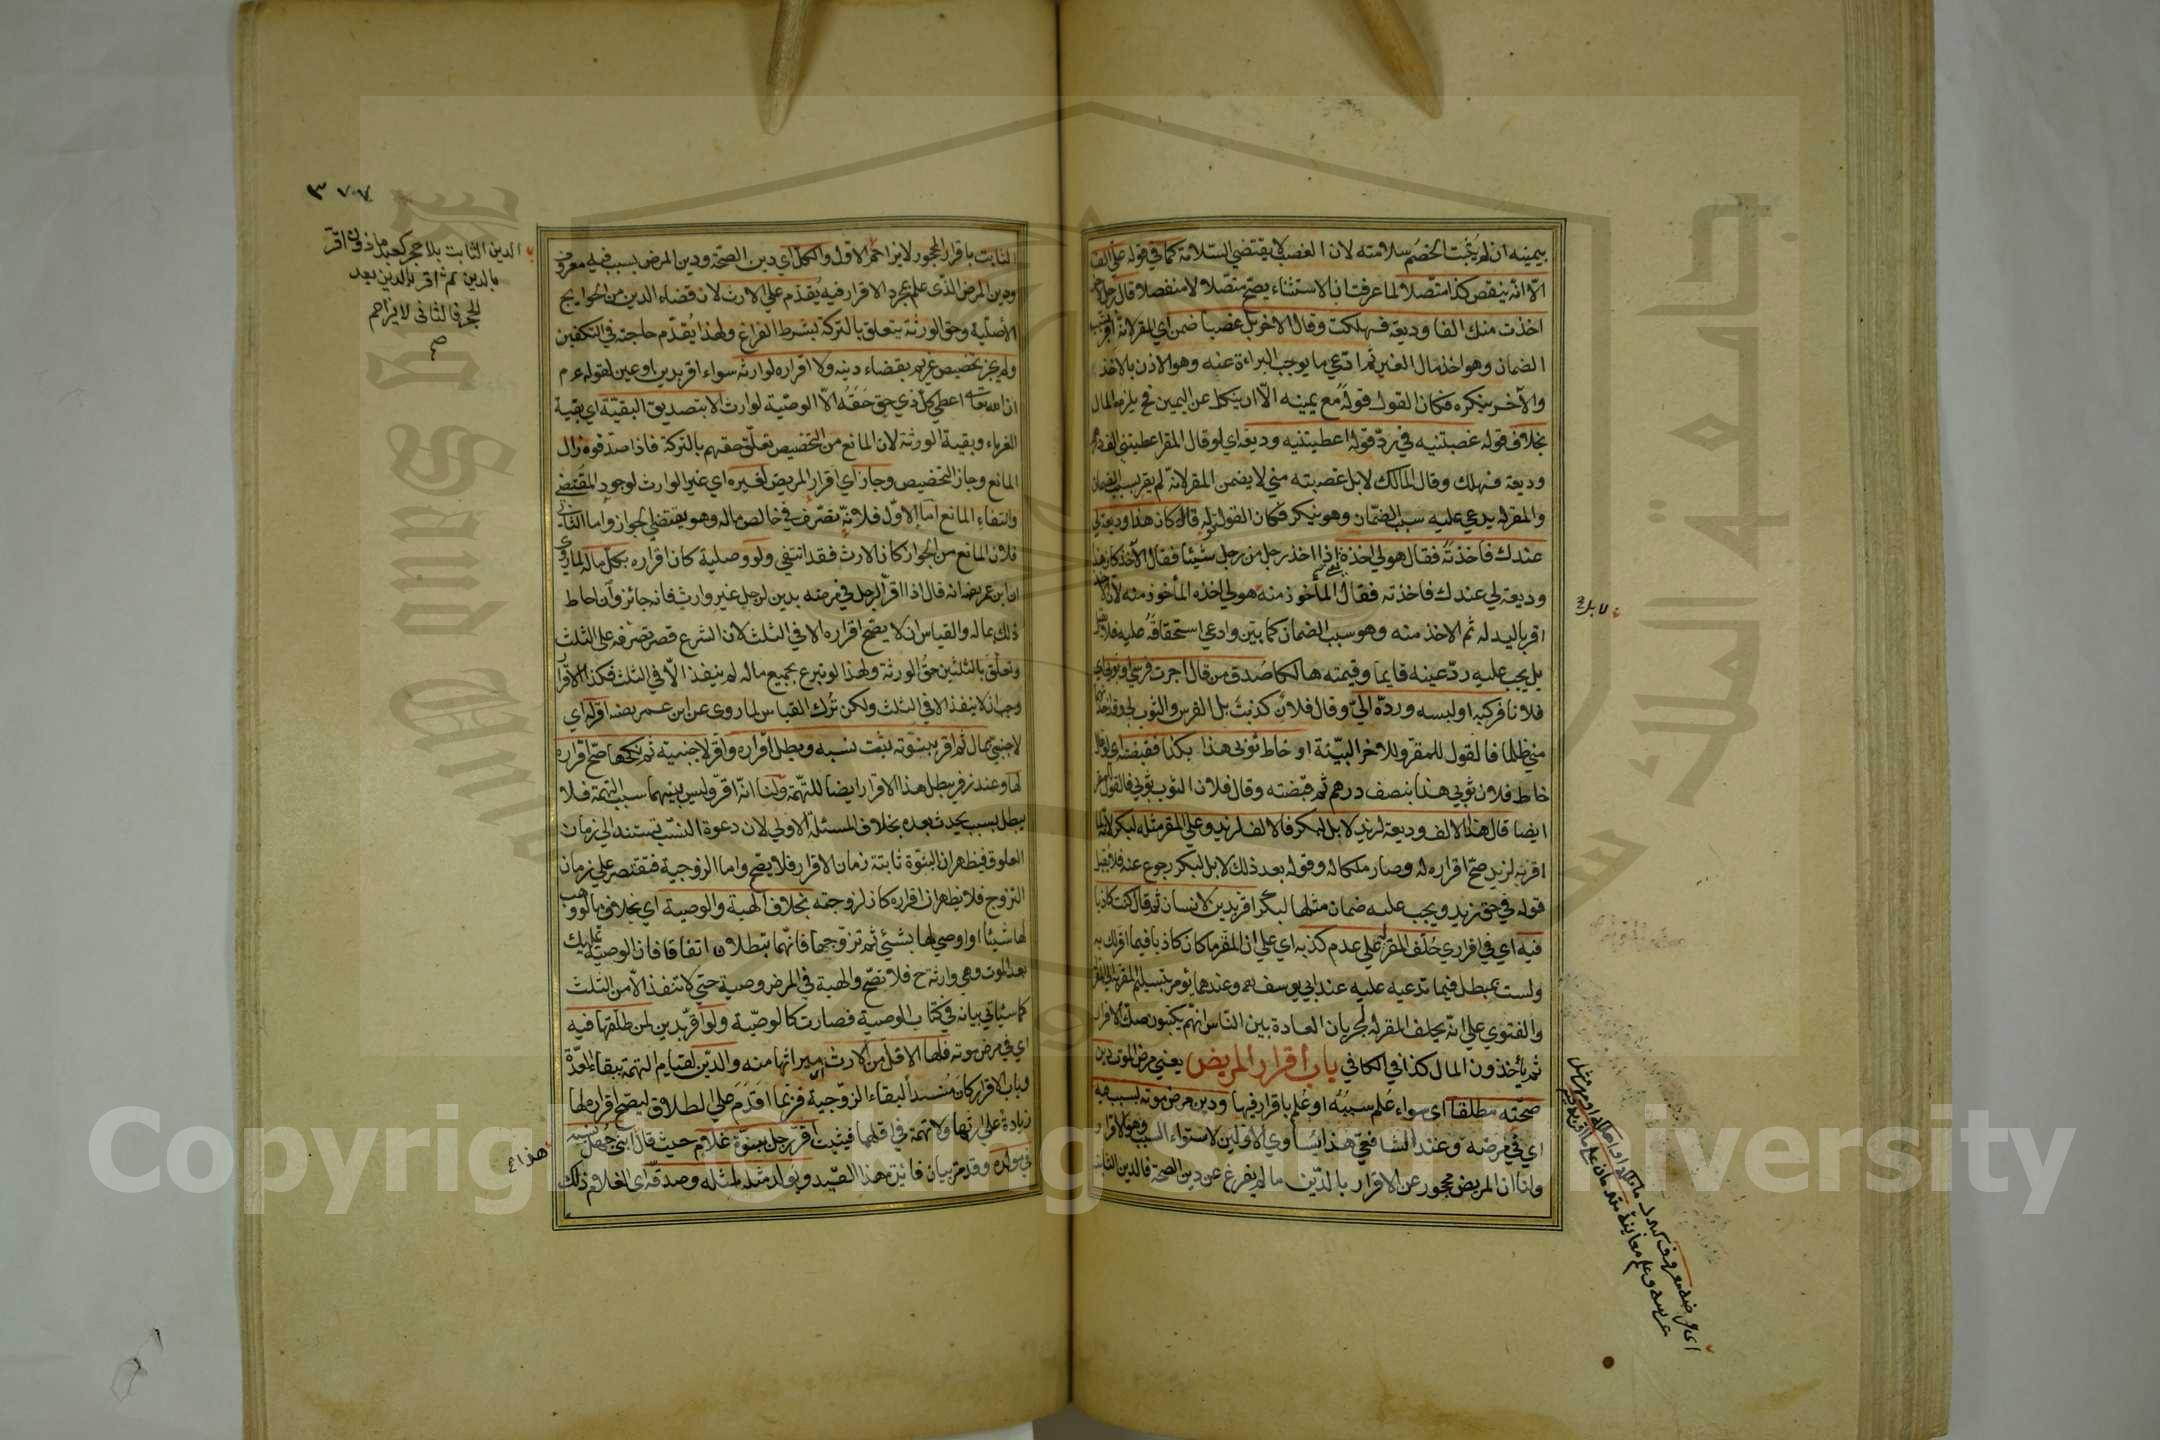 بيمينه ان لم يثبت الخصم سلامته لان الغصب لا يقتضي السلامة كما في قوله علي الف
الا انه ينقص كذا متصلا لما عرفت ان الاستثناء يصح متصلا لا منفصلا قال رجل لآخر
اخذت منك الفا وديعة فهلكت وقال الاخر بل غصبا ضمن اي المقر لانه اقر بسبب
الضمان وهو اخذ مال الغير ثم ادعي ما يوجب البراءة عنه وهو الاذن بالاخذ
والآخر ينكره فكان القول قوله مع يمينه الا ان ينكل عن اليمين فح يلزمه المال
بخلاف قوله غصبتنيه في رد قوله اعطيتنيه وديعة اي لو قال المقر اعطيتني الف درهم
وديعة فهلك وقال المالك لا بل غصبته مني لا يضمن المقر لانه لم يقر بسبب الضمان
والمقر له يدعي عليه سبب الضمان وهو ينكر فكان القول له قال كان هذا وديعة لي
عندك فاخذته فقال هو لي اخذه اي اذا اخذ رجل من رجل شيئا فقال الآخذ كان هذا
وديعة لي عندك فاخذته فقال المأخوذ منه هو لي اخذه المأخوذ منه لان الآخذ
اقر باليد له ثم الاخذ منه وهو سبب الضمان كما بين وادعي استحقاقه عليه فلا يقبل
بل يجب عليه رد عينه قايما وقيمته هالكا صدق من قال اجرت فرسي او ثوبي اي
فلانا فركبه او لبسه ورده الي وقال فلان كذبت بل الفرس والثوب لي وقد اخذتهما
مني ظلما فالقول للمقر وللاخر البينة او خاط ثوبي هذا بكذا فقبضته اي لو قال
خاط فلان ثوبي هذا بنصف درهم ثم قبضته وقال فلان الثوب ثوبي فالقول للمقر
ايضا قال هذا الالف وديعة لزيد لا بل لبكر فالالف لزيد وعلي المقر مثله لبكر لانه لما
اقر به لزيد صح اقراره له وصار ملكا له وقوله بعد ذلك لا بل لبكر رجوع عنه فلا يقبل
قوله في حق زيد ويجب عليه ضمان مثلها لبكر اقر بدين لانسان ثم قال كنت كاذبا
فيه اي في اقراري حلف المقر له علي عدم كذبه اي علي ان المقر ما كان كاذبا فيما اقر لك به
ولست بمبطل فيما تدعيه عليه عند ابي يوسف رحمه وعندهما يؤمر بتسليم المقر به الي المقر له
والفتوي علي انه يحلف المقر له لجريان العادة بين الناس انهم يكتبون صك الاقرار
ثم يأخذون المال كذا في الكافي باب اقرار المريض يعني مرض الموت دين
صحته مطلقا اي سواء علم سببه او علم باقرار فيها ودين مرض موته بسبب فيه
اي في مرضه وعند الشافعي هذا يساوي الاولين لاستواء السبب وهو الاقرار
ولنا ان المريض محجور عن الاقرار بالدين ما لم يفرغ عن دين الصحة فالدين الثابت
لا بل ح
٣٠٧
الدين الثابت بلا حجر كعبد مأذون اقر
بالدين ثم اقر بالدين بعد
الحجر فالثاني لا يزاحم
الثابت باقرار المحجور لا يزاحم الاول والكل اي دين الصحة ودين المرض بسبب فيه معروف
ودين المرض الذي علم بمجرد الاقرار فيه يقدم علي الارث لان قضاء الدين من الحوايج
الاصلية وحق الورثة يتعلق بالتركة بشرط الفراغ ولهذا يقدم حاجته في التكفين
ولم يجز تخصيص غريم بقضاء دينه ولا اقراره لوارثه سواء اقر بدين او عين لقوله عم
ان الله تعالى اعطي كل ذي حق حقه الا لا وصية لوارث الا بتصديق البقية اي بقية
الغرماء وبقية الورثة لان المانع من التخصيص تعلق حقهم بالتركة فاذا صدقوه زال
المانع وجاز التخصيص وجاز اي اقرار المريض لغيره اي غير الوارث لوجود المقتضي
وانتفاء المانع اما الاول فلانه تصرف في خالص ماله وهو يقتضي الجواز واما الثاني
فلان المانع من الجواز كان الارث فقد انتفي ولو وصلية كان اقراره بكل ماله لما روي
ان ابن عمر رضه انه قال اذا اقر الرجل في مرضه بدين لرجل غير وارث فانه جائز وان احاط
ذلك بماله والقياس ان لا يصح اقراره الا في الثلث لان الشرع قصر تصرفه على الثلث
وتعلق بالثلثين حق الورثة ولهذا لو تبرع بجميع ماله لم ينفذ الا في الثلث فكذا الاقرار
وجب ان لا ينفذ الا في الثلث ولكن ترك القياس لما روي عن ابن عمر رضه اقر له اي
لاجنبي بمال ثم اقر ببنوته يثبت نسبه ويبطل اقراره واقر لاجنبية ثم نكحها صح اقراره
لها وعند زفر يبطل هذا الاقرار ايضا للتهمة ولنا انه اقر وليس بينهما سبب التهمة فلا
يبطل بسبب يحدث بعده بخلاف المسئلة الاولي لان دعوة النسب تستند الي زمان
العلوق فيظهر ان البنوة ثابتة زمان الاقرار فلا يصح واما الزوجية فمقتصر علي زمان
التزوج فلا يظهر ان اقراره كان لزوجته بخلاف الهبة والوصية اي بخلاف ما لو وهب
لها شيئا او اوصي لها بشيء ثم تزوجها فانهما يبطلان اتفاقا فان الوصية تمليك
بعد الموت وهي وارثة ح فلا تصح والهبة في المرض وصية حتي لا تنفذ الا من الثلث
كما سيأتي بيانه في كتاب الوصية فصارت كالوصية ولو اقر بدين لمن طلقها فيه
اي في مرض موته فلها الاقل من الارث ميراثها منه والدين لقيام التهمة ببقاء العدة
وباب الاقرار كان منسدا لبقاء الزوجية فربما اقدم علي الطلاق ليصح اقراره لها
زيادة علي ارثها ولا تهمة في اقلهما فيثبت اقر رجل ببنوة غلام حيث قال ابني جهل نسبه
في مولده وقد مر بيان فائدة هذا القيد ويولد مثله لمثله وصدقه اي الغلام ذلك
Copyright © King Saud University
جامعة الملك سعود
King Saud University
1957